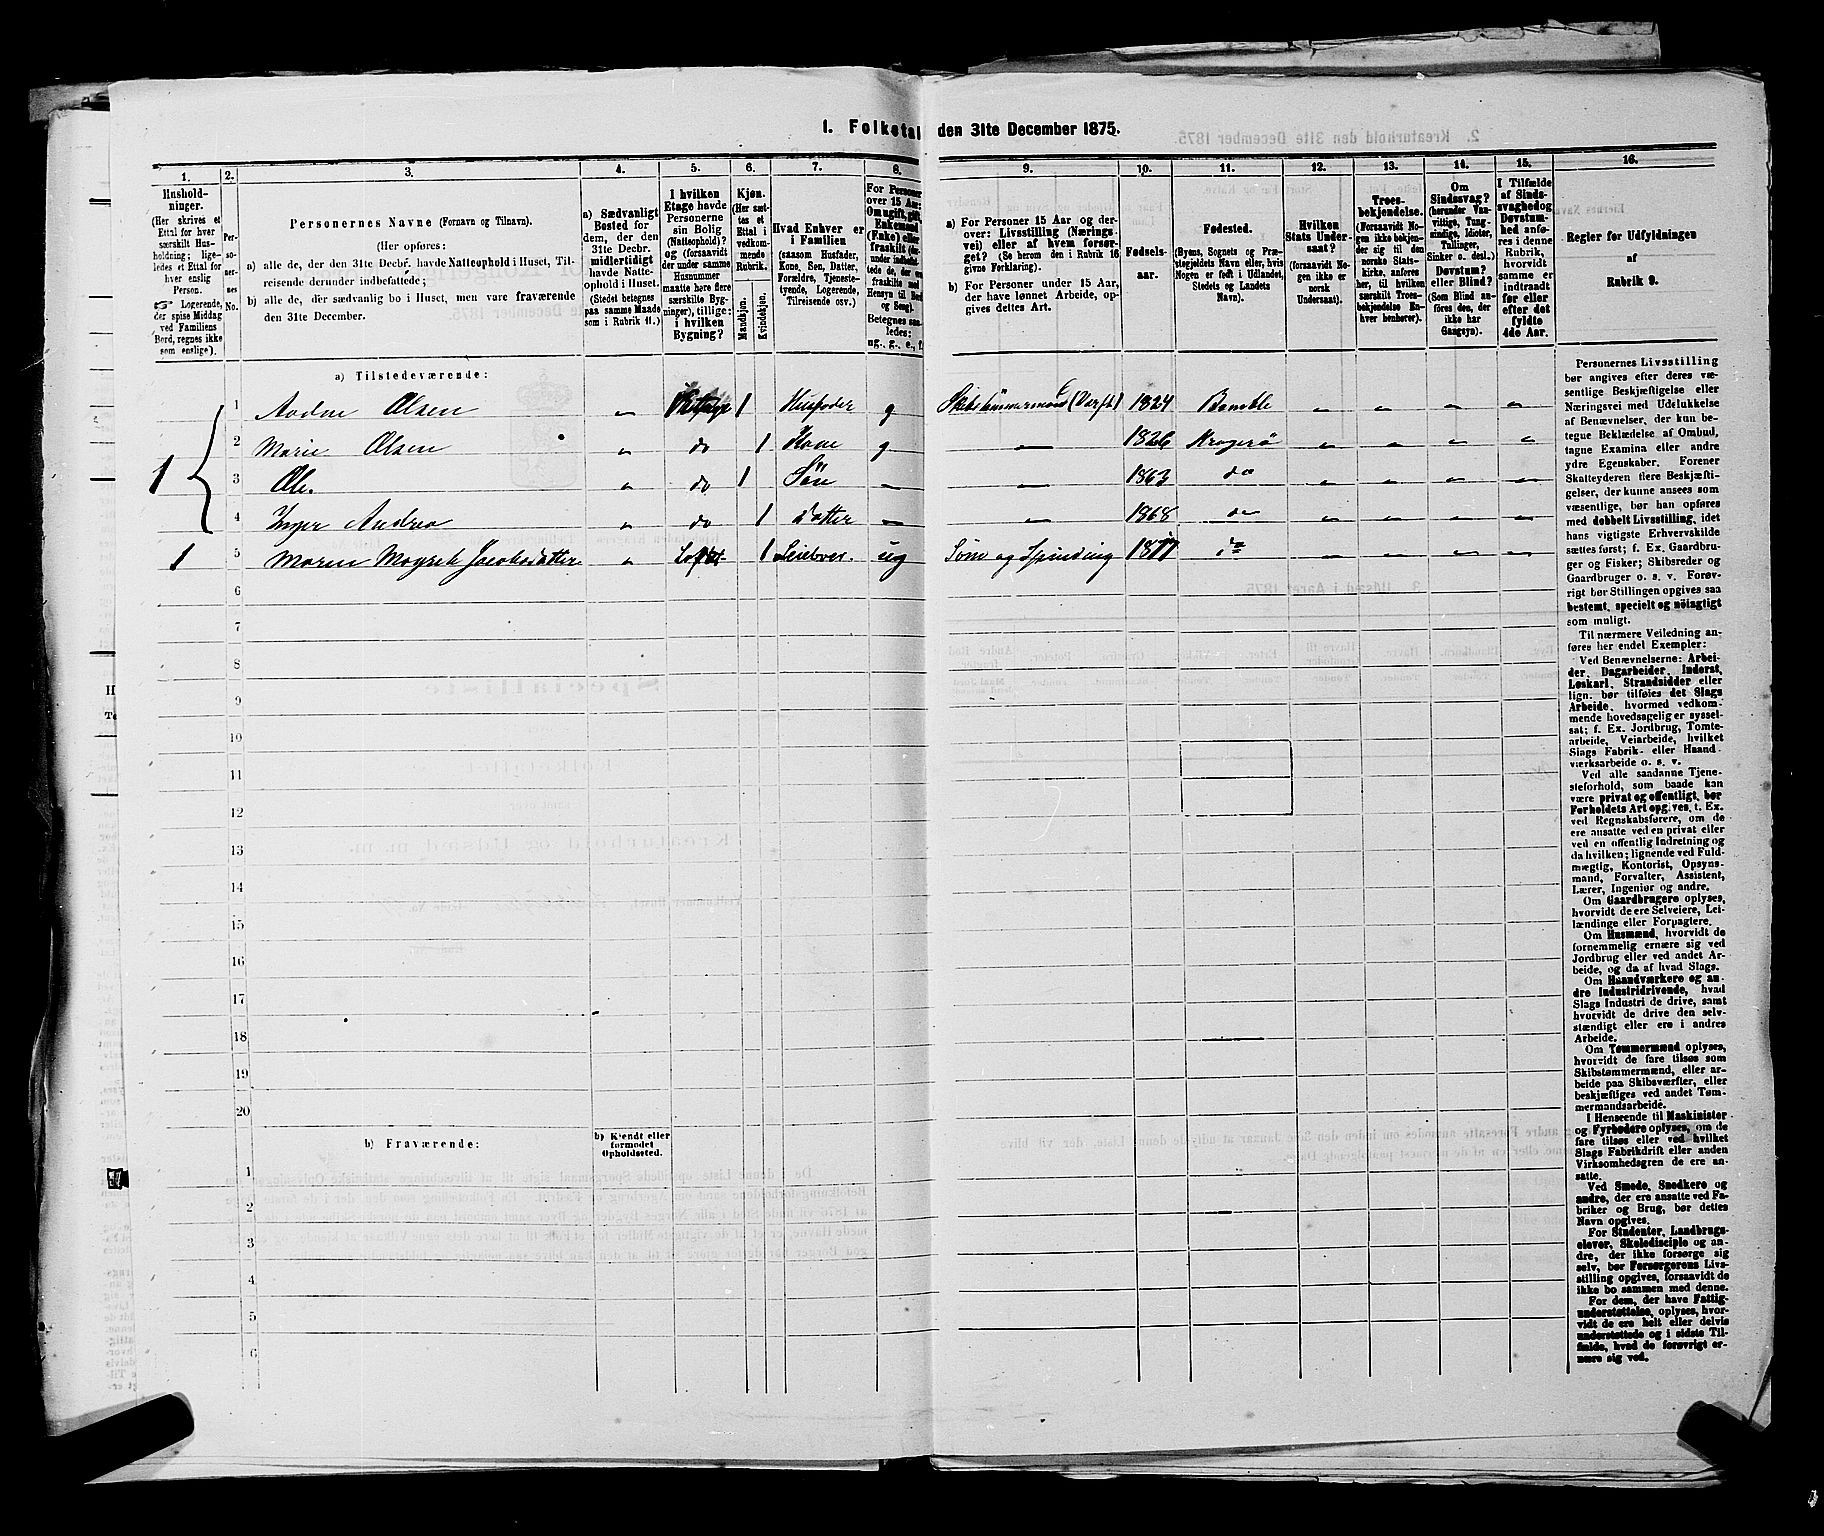 1. Folketal den 31te December 1875.
1. 2. 3. 4. 5. 6. 7. 8. 9. 10. 11. 12. 13. 14. 15. 16.
Hushold-
ninger.
(Her skrives et
Ettal for hver
særskilt Hus-
holdning; lige-
ledes et Ettal for
hver enslig
Person.
☞ Logerende,
der spise Middag
ved Familiens
Bord, regnes ikke
som enslige).
Per-
so-
ner-
nes
No.
Personernes Navne (Fornavn og Tilnavn).
(Her opføres:
a) alle de, der den 31te Decbr. havde Natteophold i Huset, Til-
reisende derunder indbefattede;
b) alle de, der sædvanlig bo i Huset, men vare fraværende
den 31te December.
a) Sædvanligt
Bosted for
dem, der den
31te Decbr.
midlertidigt
havde Natte-
ophold i Huset.
(Stedet betegnes
paa samme Maade
som i Rubrik 11.)
I hvilken
Etage havde
Personerne
sin Bolig
(Natteophold)?
og (forsaavidt
der under samme
Husnummer
maatte høre flere
særskilte Byg-
ninger), tillige:
i hvilken
Bygning?
Kjøn.
(Her sæt-
tes et
Ettal i
vedkom-
mende
Rubrik.
Mandkjøn.
Kvindekjøn.
Hvad Enhver er
i Familien
(saasom Husfader,
Kone, Søn, Datter,
Forældre, Tjeneste-
tyende, Logerende,
Tilreisende osv.)
For Personer
over 15 Aar:
Om ugift, gift,
Enkemand
(Enke) eller
fraskilt
Betegnes saa-
ledes:
ug., g., e., f.
a) For Personer 15 Aar og der-
over: Livsstilling (Nærings-
vei) eller af hvem forsør-
get? (Se herom den i Rubrik 16
givne Forklaring).
b) For Personer under 15 Aar,
der have lønnet Arbeide, op-
gives dettes Art.
Fødsels-
aar.
Fødested.
(Byens, Sognets og Præ-
stegjeldets Navn eller, hvis
Nogen er født i Udlandet,
Stedets og Landets
Navn).
Hvilken
Stats Under-
saat?
(forsaavidt No-
gen ikke er
norsk
Undersaat).
Troes-
bekjendelse.
(Forsaavidt No-
gen ikke bekjen-
der sig til den
norske Stats-
kirke, anføres
her, til hvilken
særskilt Troes-
bekjendelse En-
hver henhører).
Om
Sindssvag?
(herunder Van-
vittige, Tung-
sindige, Idioter,
Tullinger,
Sinker o. desl.)
Døvstum?
eller Blind?
(Som Blind an-
føres den, der
ikke har
Gangsyn).
I Tilfælde
af Sinds-
svaghed og
Døvstum-
hed anfø-
res i denne
Rubrik,
hvorvidt
samme er
indtraadt
før eller
efter det
fyldte
4de Aar.
Regler for Udfyldningen
af
Rubrik 9.
a) Tilstedeværende:
1 1 Olsen 1 Husfader g Skibstømmermand (Værft) 1824 Bamble
2 Maren Olsen do 1 Kone g 1826 Kragerø
3 Ole. do 1 Søn 1863 do
4 Inger Andrea do 1 datter 1868 do
1 5 Maren Jacobsdatter 1 ug Søm og Spinding do
6
7
8
9
10
11
12
13
14
15
16
17
18
19
20
b) Fraværende:
b) Kjendt eller
formodet
Opholdssted.
1
2
3
4
5
6
Personernes Livsstilling
bør angives efter deres væ-
sentlige Beskjæftigelse eller
Næringsvei med Udelukkelse
af Benævnelser, der kun be-
tegne Beklædelse af Ombud,
tagne Examina eller andre
ydre Egenskaber. Forener
Skatteyderen flere Beskjæfti-
gelser, der kunne ansees som
væsentlige, bør han opføres
med dobbelt Livsstilling, idet
hans vigtigste Erhvervskilde
sættes først; f. Ex. Gaardbru-
ger og Fisker; Skibsreder og
Gaardbruger o. s. v. Forøv-
rigt bør Stillingen opgives saa
bestemt, specielt og nøiagtigt
som muligt.
Til nærmere Veiledning an-
føres her endel Exempler:
Ved Benævnelserne: Arbei-
der, Dagarbeider, Inderst,
Løskarl, Strandsidder eller
lign. bør tilføies det Slags
Arbeide, hvormed vedkom-
mende hovedsagelig er syssel-
sat; f. Ex. Jordbrug, Tomte-
arbeide, Veiarbeide, hvilket
Slags Fabrik- eller Haand-
værksarbeide o. s. v.
Ved alle saadanne Tjene-
steforhold, som baade kan
være privat og offentligt, bør
Forholdets Art opgives, t. Ex.
ved Regnskabsførere, om de
ere ansatte ved en privat eller
ved en offentlig Indretning og
da hvilken; lignende ved Fuld-
mægtig, Kontorist, Opsyns-
mand, Forvalter, Assistent,
Lærer, Ingeniør og andre.
Om Gaardbrugere oplyses,
hvorvidt de ere Selveiere, Lei-
lændinge eller Forpagtere.
Om Husmænd, hvorvidt de
fornemmelig ernære sig ved
Jordbrug eller ved andet Ar-
beide, og da af hvad Slags.
Om Haandværkere og an-
dre Industridrivende, hvad
Slags Industri de drive, samt
hvorvidt de drive den selv-
stændigt eller ere i andres
Arbeide.
Om Tømmermænd oplyses,
hvorvidt de fare tilsøs som
Skibstømmermænd, eller ar-
beide paa Skibsværfter, eller
beskjæftiges ved andet Tøm-
mermandsarbeide.
I Henseende til Maskinister
og Fyrbødere oplyses, om de
fare tilsøs eller ved hvilket
Slags Fabrikdrift eller anden
Virksomhedsgren de ere an-
satte.
Ved Smede, Snedkere og
andre, der ere ansatte ved Fa-
briker og Brug, bør dettes
Navn opgives.
For Studenter, Landbrugs-
elever, Skoledisciple og an-
dre, der ikke forsørge sig
selv, bør Forsørgerens Livs-
stilling opgives, forsaavidt de
ikke bo sammen med denne.
For dem, der have Fattig-
understøttelse, oplyses, hvor-
vidt de ere helt eller delvis
understøttede og i sidste Til-
fælde, hvad de forøvrigt er-
nære sig ved.